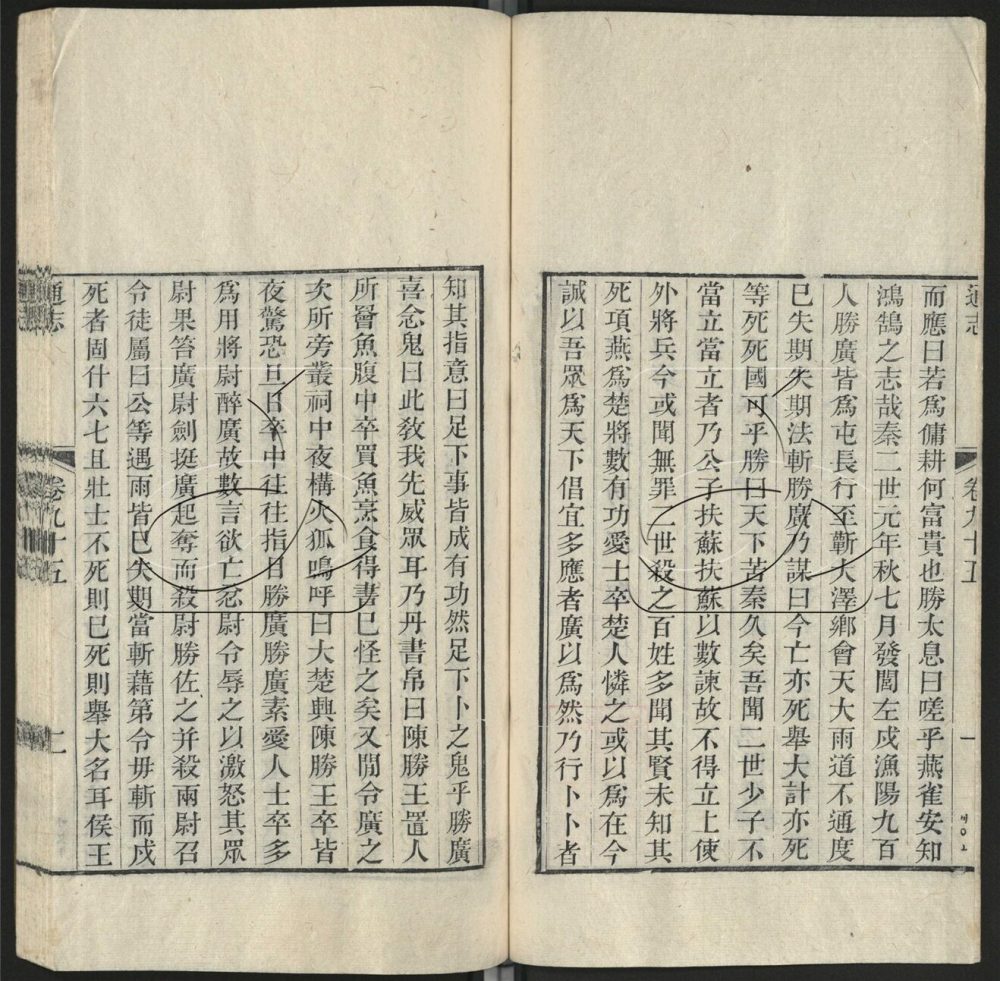 通志
卷九十五
一
而應曰若為傭耕何富貴也勝太息曰嗟乎燕雀安知
鴻鵠之志哉秦二世元年秋七月發閭左戍漁陽九百
人勝廣皆為屯長行至蘄大澤鄉會天大雨道不通度
已失期失期法斬勝廣乃謀曰今亡亦死舉大計亦死
等死死國可乎勝曰天下苦秦久矣吾聞二世少子不
當立當立者乃公子扶蘇扶蘇以數諫故不得立上使
外將兵今或聞無罪二世殺之百姓多聞其賢未知其
死項燕為楚將數有功愛士卒楚人憐之或以為在今
誠以吾眾為天下倡宜多應者廣以為然乃行卜卜者
知其指意曰足下事皆成有功然足下卜之鬼乎勝廣
喜念鬼曰此教我先威眾耳乃丹書帛曰陳勝王置人
所罾魚腹中卒買魚烹食得書已怪之矣又閒令廣之
次所旁叢祠中夜構火狐鳴呼曰大楚興陳勝王卒皆
夜驚恐旦日卒中往往指目勝廣勝廣素愛人士卒多
為用將尉醉廣故數言欲亡忿尉令辱之以激怒其眾
尉果笞廣尉劍挺廣起奪而殺尉勝佐之并殺兩尉召
令徒屬曰公等遇雨皆已失期當斬藉第令毋斬而戍
死者固什六七且壯士不死則已死則舉大名耳侯王
通志
卷九十五
二